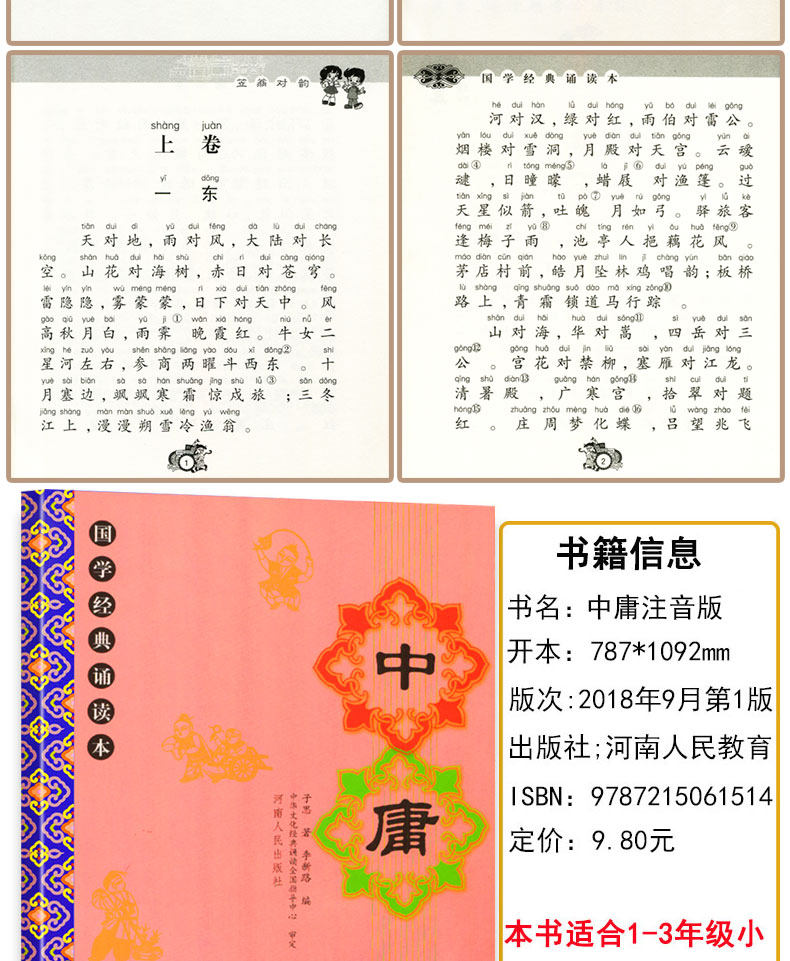 笠翁对韵
shàng juàn
上 卷
yī dōng
一 东
tiān duì dì yǔ duì fēng dà lù duì cháng
天对地,雨对风,大陆对长
kōng shān huā duì hǎi shù chì rì duì cāng qióng
空。山花对海树,赤日对苍穹。
léi yǐn yǐn wù méng méng rì xià duì tiān zhōng fēng
雷隐隐,雾蒙蒙,日下对天中。风
gāo qiū yuè bái yǔ jì ① wǎn xiá hóng niú nǚ èr
高秋月白,雨霁 晚霞红。牛女二
xīng hé zuǒ yòu shēn shāng liǎng yào dǒu xī dōng ②
星河左右,参商两曜斗西东 。十
yuè sài biān sà sà hán shuāng jīng shù lǚ ③ sān dōng
月塞边,飒飒寒霜惊戍旅 ;三冬
jiāng shàng màn màn shuò xuě lěng yú wēng
江上,漫漫朔雪冷渔翁。
1
国学经典诵读本
hé duì hàn lǜ duì hóng yǔ bó duì léi gōng
河对汉,绿对红,雨伯对雷公。
yān lóu duì xuě dòng yuè diàn duì tiān gōng yún ài
烟楼对雪洞,月殿对天宫。云叆
dài ④ rì tóng méng ⑤ là jī ⑥ duì yú péng guò
叇 ,日曈曚 ,蜡屐 对渔篷。过
tiān xīng sì jiàn tǔ pò ⑦ yuè rú gōng yì lǚ kè
天星似箭,吐魄 月如弓。驿旅客
féng méi zǐ yǔ ⑧ chí tíng rén yì ǒu huā fēng ⑨
逢梅子雨 ,池亭人挹藕花风 。
máo diàn cūn qián hào yuè zhuì lín jī chàng yùn bǎn qiáo
茅店村前,皓月坠林鸡唱韵;板桥
lù shàng qīng shuāng suǒ dào mǎ xíng zōng ⑩
路上,青霜锁道马行踪 。
shān duì hǎi huà duì sōng ⑪ sì yuè duì sān
山对海,华对嵩 ,四岳对三
gōng ⑫ gōng huā duì jìn liǔ sài yàn duì jiāng lóng
公 。宫花对禁柳,塞雁对江龙。
qīng shǔ diàn ⑬ guǎng hán gōng ⑭ shí cuì duì tí
清暑殿 ,广寒宫 ,拾翠对题
hóng ⑮ zhuāng zhōu mèng huà dié ⑯ lǚ wàng zhào fēi
红 。庄周梦化蝶 ,吕望兆飞
2
国学经典诵读本
中庸
子思 著 李新路 编
中华文化经典诵读全国指导中心 审定
河南人民出版社
书籍信息
书名：中庸注音版
开本：787*1092mm
版次:2018年9月第1版
出版社;河南人民教育
ISBN：9787215061514
定价：9.80元
本书适合1-3年级小